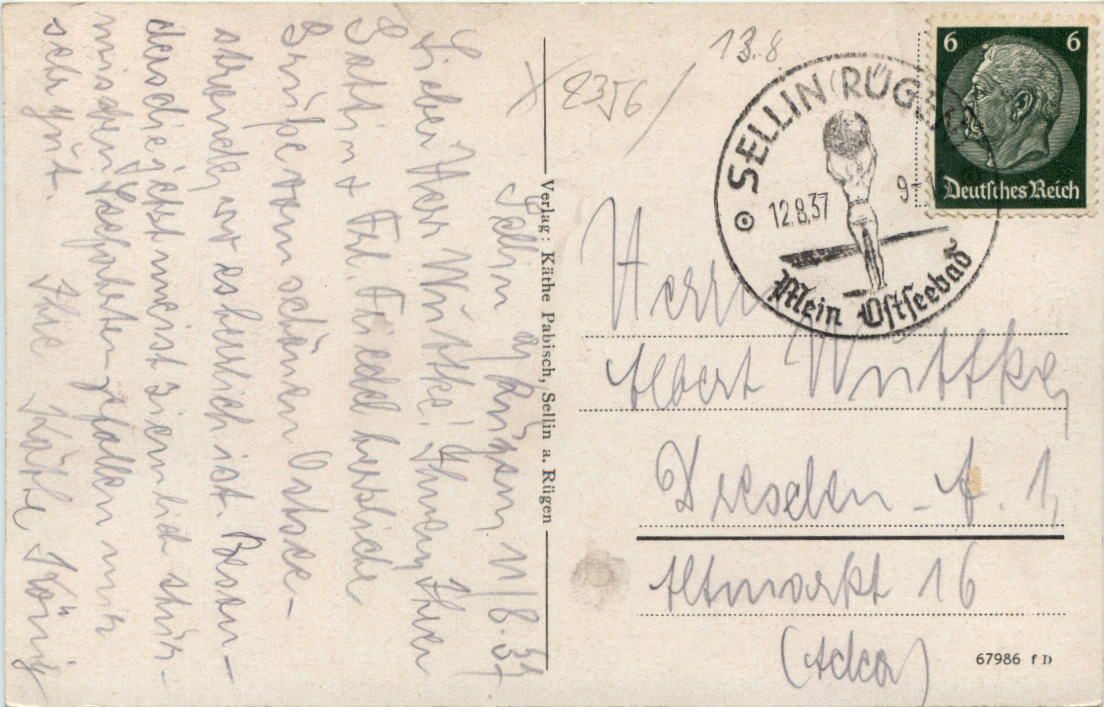 Sellin a/ Rügen, 11/8.37.
Lieber Herr Wuttke! Ihnen, Ihrer
Gattin & Frl. Friedel herzliche
Grüße vom schönen Ostsee-
strande, wo es herrlich ist. Besonders
die jetzt meist ziemlich stür-
mischen Seefahrten gefallen mir
sehr gut. Ihre Käthe König
Verlag: Käthe Pabisch, Sellin a. Rügen
13.8
8356/
SELLIN (RÜGEN)
12.8.37 9-
Mein Ostseebad
6 6
Deutsches Reich
Herrn
Albert Wuttke,
Dresden - A. 1,
Altmarkt 16
(Adca)
67986 f D